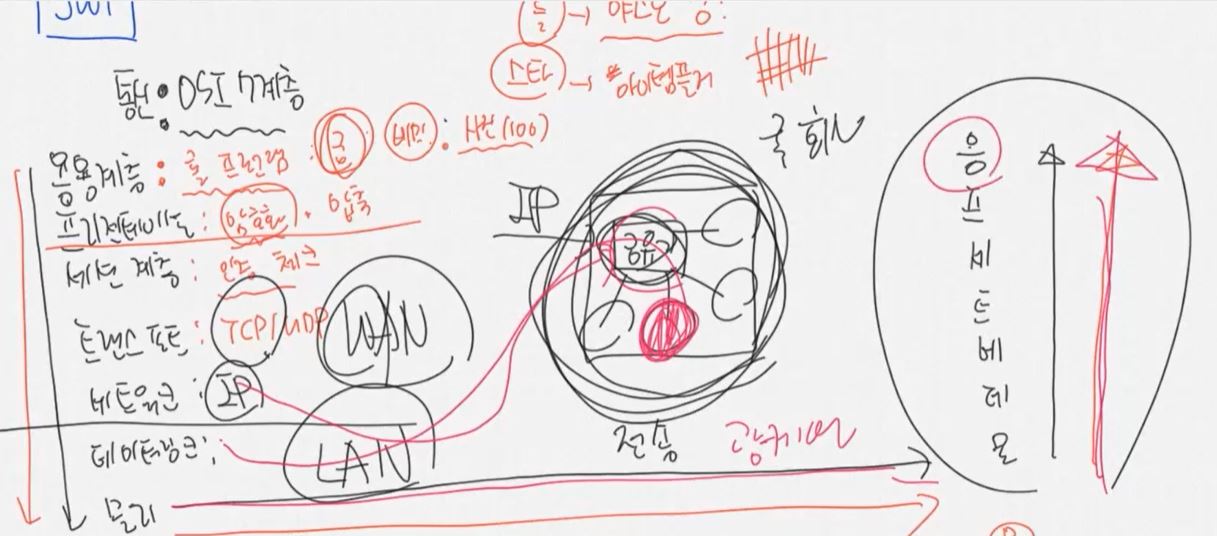 JWT
롤 → 야스오
스타 → 아이템플거
통신: OSI 7계층
응용계층: 롤 프런렘. 롱 비밀: H번(100)
프리젠테이션: 암호화. 압축
세션 계층: 인증 체크
트랜스포트: TCP/UDP
네트워크: IP
데이터링크:
물리
WAN
LAN
IP
공유기
국회
전송
광케이블
응
프
세
트
네
데
물